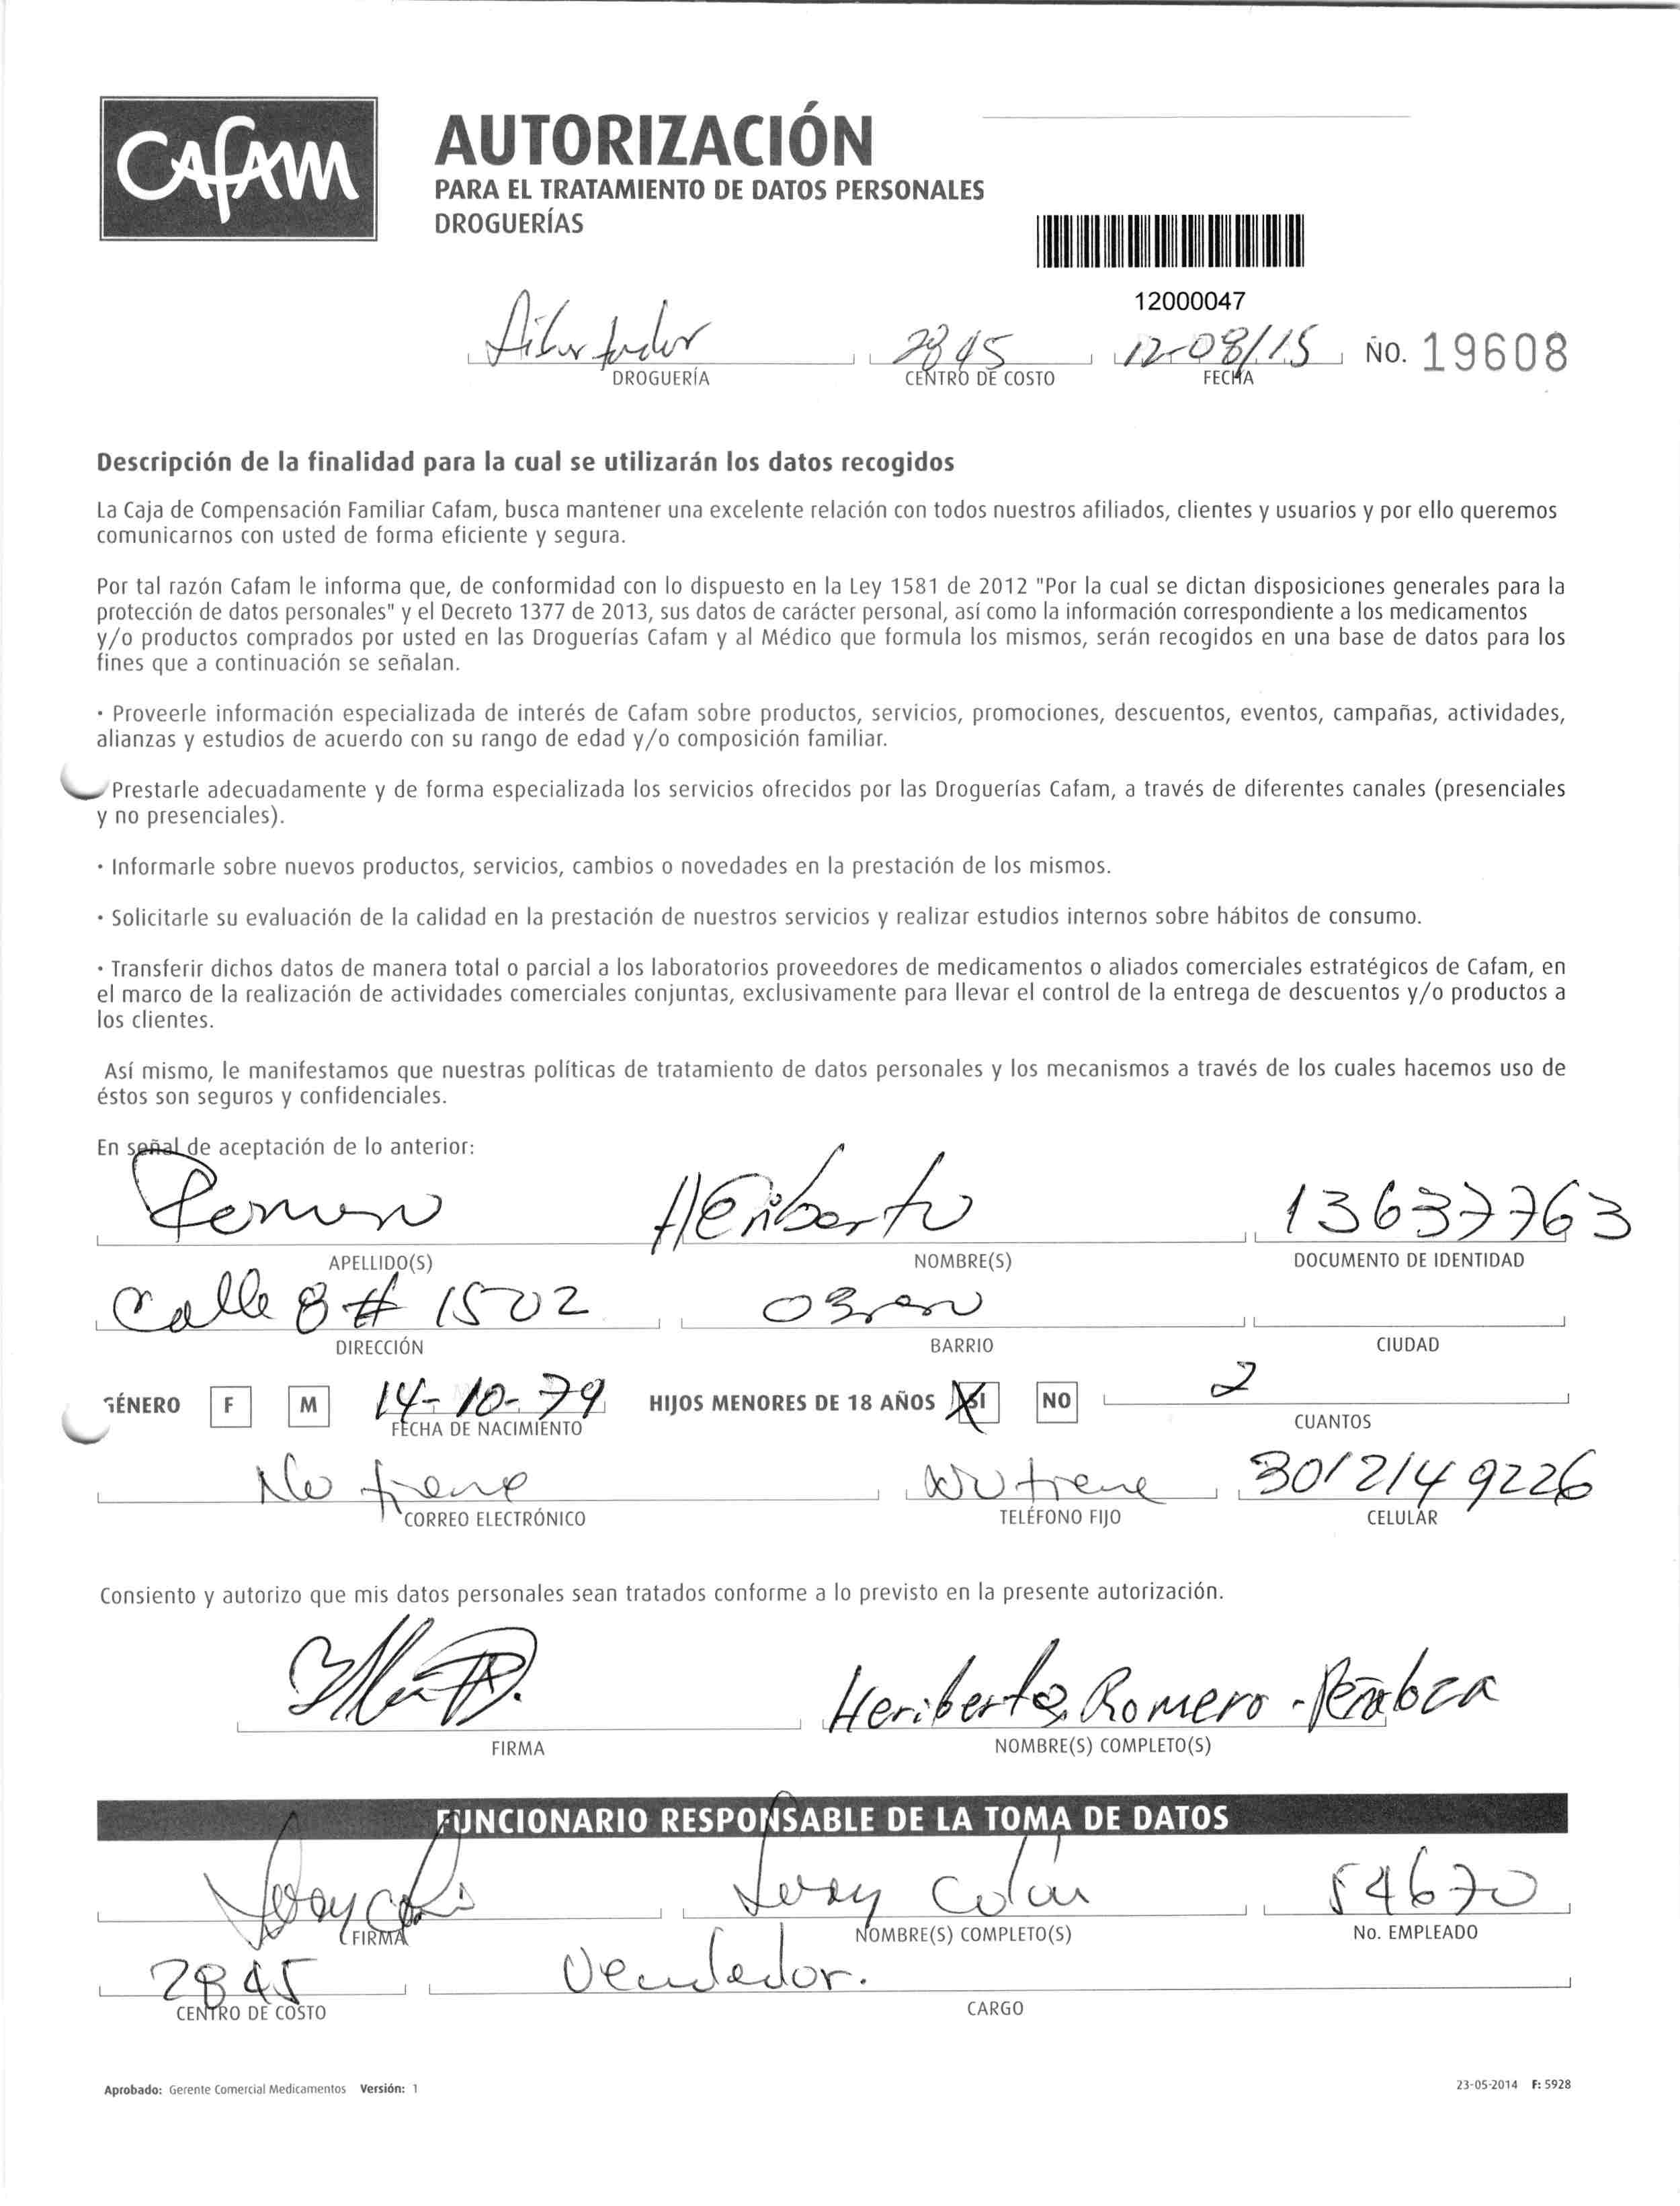 CAFAM
AUTORIZACIÓN
PARA EL TRATAMIENTO DE DATOS PERSONALES
DROGUERÍAS
12000047
2845 12-08/15 No. 19608
DROGUERÍA CENTRO DE COSTO FECHA
Descripción de la finalidad para la cual se utilizarán los datos recogidos
La Caja de Compensación Familiar Cafam, busca mantener una excelente relación con todos nuestros afiliados, clientes y usuarios y por ello queremos
comunicarnos con usted de forma eficiente y segura.
Por tal razón Cafam le informa que, de conformidad con lo dispuesto en la Ley 1581 de 2012 "Por la cual se dictan disposiciones generales para la
protección de datos personales" y el Decreto 1377 de 2013, sus datos de carácter personal, así como la información correspondiente a los medicamentos
y/o productos comprados por usted en las Droguerías Cafam y al Médico que formula los mismos, serán recogidos en una base de datos para los
fines que a continuación se señalan.
· Proveerle información especializada de interés de Cafam sobre productos, servicios, promociones, descuentos, eventos, campañas, actividades,
alianzas y estudios de acuerdo con su rango de edad y/o composición familiar.
Prestarle adecuadamente y de forma especializada los servicios ofrecidos por las Droguerías Cafam, a través de diferentes canales (presenciales
y no presenciales).
· Informarle sobre nuevos productos, servicios, cambios o novedades en la prestación de los mismos.
· Solicitarle su evaluación de la calidad en la prestación de nuestros servicios y realizar estudios internos sobre hábitos de consumo.
· Transferir dichos datos de manera total o parcial a los laboratorios proveedores de medicamentos o aliados comerciales estratégicos de Cafam, en
el marco de la realización de actividades comerciales conjuntas, exclusivamente para llevar el control de la entrega de descuentos y/o productos a
los clientes.
Así mismo, le manifestamos que nuestras políticas de tratamiento de datos personales y los mecanismos a través de los cuales hacemos uso de
éstos son seguros y confidenciales.
En señal de aceptación de lo anterior:
Heriberto 13637763
APELLIDO(S) NOMBRE(S) DOCUMENTO DE IDENTIDAD
Calle 8 # 1502
DIRECCIÓN BARRIO CIUDAD
GÉNERO F M 14-10-79 HIJOS MENORES DE 18 AÑOS SI NO 2
FECHA DE NACIMIENTO CUANTOS
No tiene No tiene 3012149226
CORREO ELECTRÓNICO TELÉFONO FIJO CELULAR
Consiento y autorizo que mis datos personales sean tratados conforme a lo previsto en la presente autorización.
Heriberto Romero
FIRMA NOMBRE(S) COMPLETO(S)
FUNCIONARIO RESPONSABLE DE LA TOMA DE DATOS
54670
FIRMA NOMBRE(S) COMPLETO(S) No. EMPLEADO
2845 Vendedor.
CENTRO DE COSTO CARGO
Aprobado: Gerente Comercial Medicamentos Versión: 1 23-05-2014 F: 5928